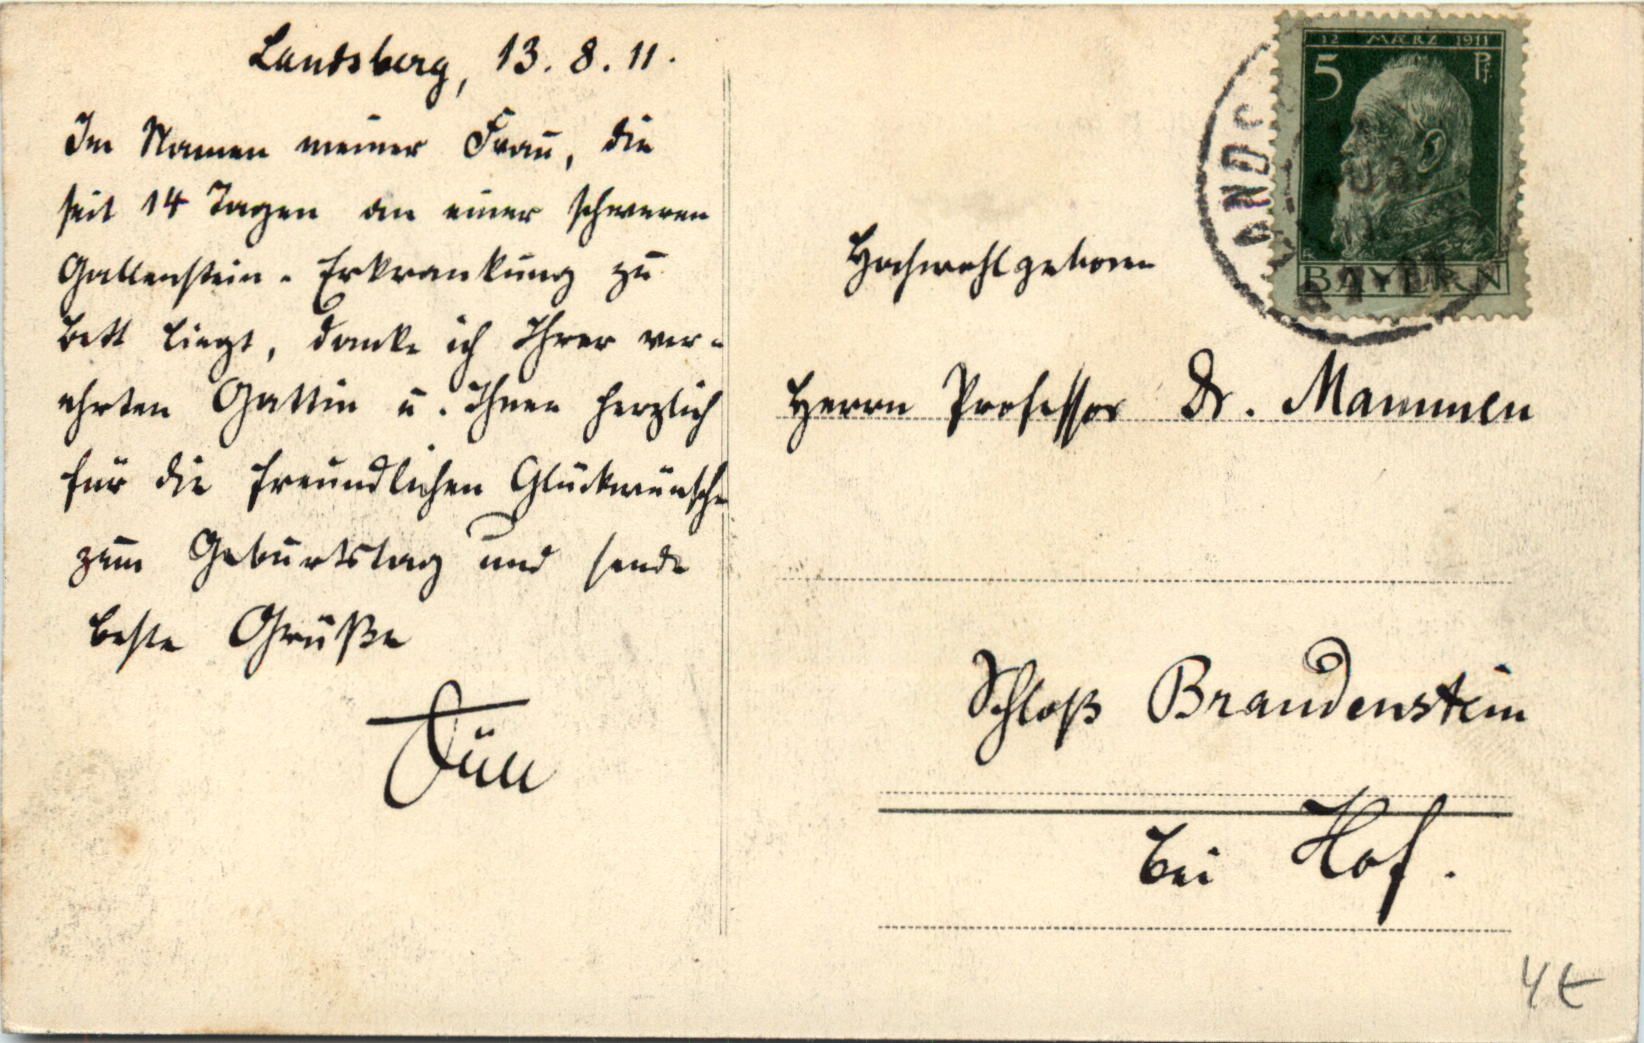 Landsberg, 13. 8. 11.
Im Namen meiner Frau, die
seit 14 Tagen an einer schweren
Gallenstein-Erkrankung zu
Bett liegt, danke ich Ihrer ver-
ehrten Gattin u. Ihnen herzlich
für die freundlichen Glückwünsche
zum Geburtstag und sende
beste Grüße
12 MÆRZ 1911
5 Pf
BAYERN
Hochwohlgeboren
Herrn Professor Dr. Mammen
Schloß Brandenstein
bei Hof.